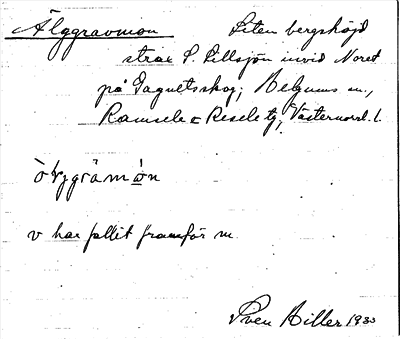 Älggravmon Liten bergshöjd
strax S. Lillsjön invid Noret
på Gagnetsskog; Helgums sn.,
Ramsele o Resele tg, Västernorrl. l.
v har fallit framför m.
Sven Hiller 1933